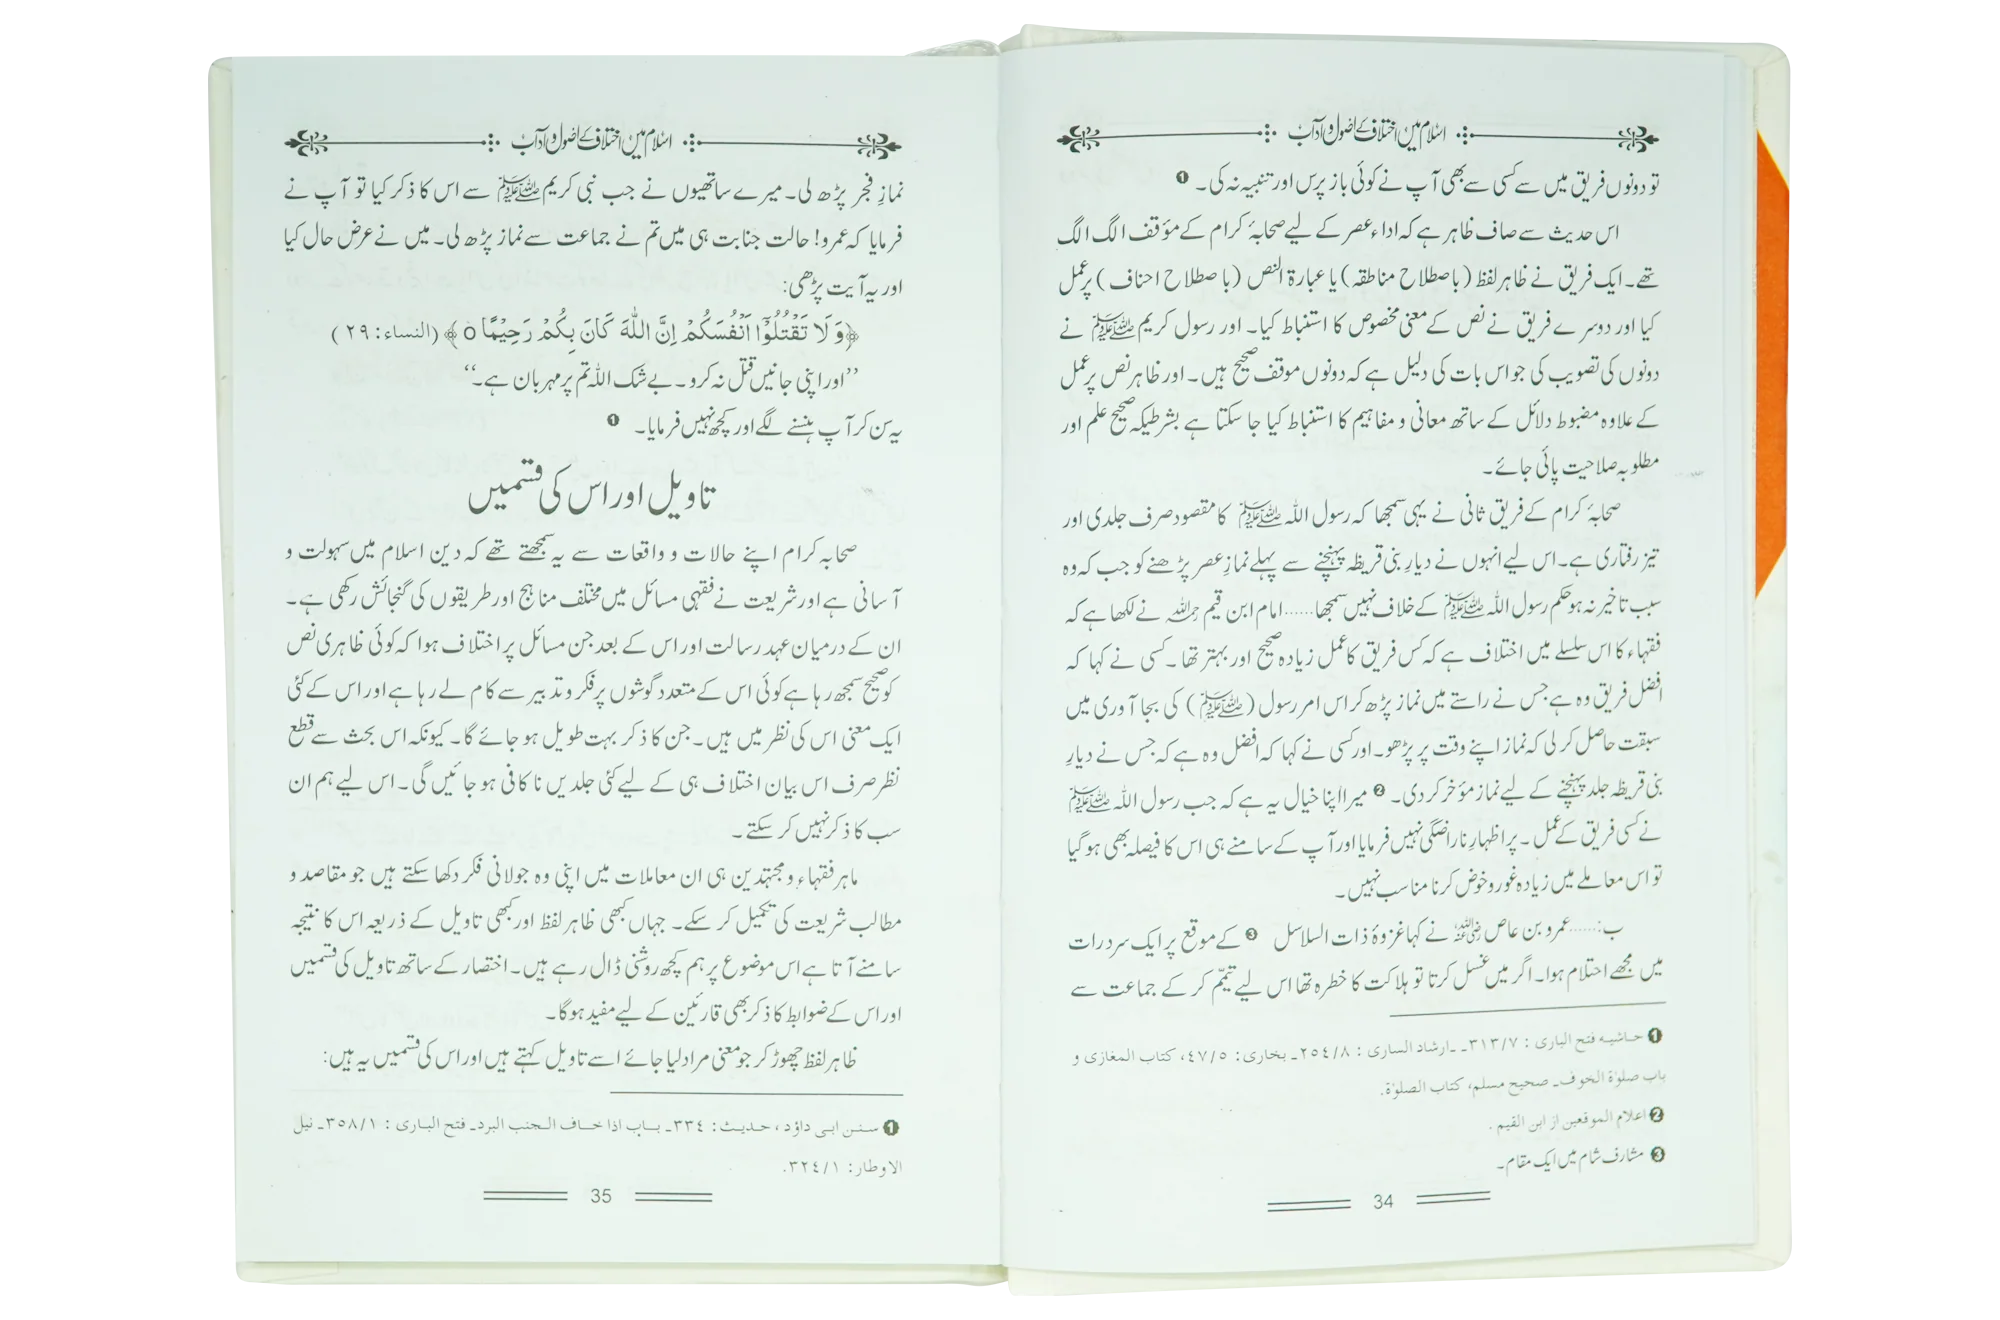 اسلام میں اختلاف کے اصول و آداب
تو دونوں فریق میں سے کسی سے بھی آپ نے کوئی باز پرس اور تنبیہ نہ کی۔ ❶
اس حدیث سے صاف ظاہر ہے کہ اداء عصر کے لیے صحابۂ کرام کے مؤقف الگ الگ
تھے۔ ایک فریق نے ظاہر لفظ (باصطلاح مناطقہ) یا عبارۃ النص (باصطلاح احناف) پر عمل
کیا اور دوسرے فریق نے نص کے معنی مخصوص کا استنباط کیا۔ اور رسول کریم ﷺ نے
دونوں کی تصویب کی جو اس بات کی دلیل ہے کہ دونوں موقف صحیح ہیں۔ اور ظاہر نص پر عمل
کے علاوہ مضبوط دلائل کے ساتھ معانی و مفاہیم کا استنباط کیا جا سکتا ہے بشرطیکہ صحیح علم اور
مطلوبہ صلاحیت پائی جائے۔
صحابۂ کرام کے فریق ثانی نے یہی سمجھا کہ رسول اللہ ﷺ کا مقصود صرف جلدی اور
تیز رفتاری ہے۔ اس لیے انہوں نے دیارِ بنی قریظہ پہنچنے سے پہلے نمازِ عصر پڑھنے کو جب کہ وہ
سبب تاخیر نہ ہو حکم رسول اللہ ﷺ کے خلاف نہیں سمجھا...... امام ابن قیم رحمہ اللہ نے لکھا ہے کہ
فقہاء کا اس سلسلے میں اختلاف ہے کہ کس فریق کا عمل زیادہ صحیح اور بہتر تھا۔ کسی نے کہا کہ
افضل فریق وہ ہے جس نے راستے میں نماز پڑھ کر اس امر رسول (ﷺ) کی بجا آوری میں
سبقت حاصل کر لی کہ نماز اپنے وقت پر پڑھو۔ اور کسی نے کہا کہ افضل وہ ہے کہ جس نے دیارِ
بنی قریظہ جلد پہنچنے کے لیے نماز مؤخر کر دی۔ ❷ میرا اپنا خیال یہ ہے کہ جب رسول اللہ ﷺ
نے کسی فریق کے عمل۔ پر اظہارِ ناراضگی نہیں فرمایا اور آپ کے سامنے ہی اس کا فیصلہ بھی ہو گیا
تو اس معاملے میں زیادہ غور و خوض کرنا مناسب نہیں۔
ب:...... عمرو بن عاص رضی اللہ عنہ نے کہا غزوۂ ذات السلاسل ❸ کے موقع پر ایک سرد رات
میں مجھے احتلام ہوا۔ اگر میں غسل کرتا تو ہلاکت کا خطرہ تھا اس لیے تیمّم کر کے جماعت سے
❶ حاشیہ فتح الباری : ٣١٣/٧۔ ۔ارشاد الساری : ٢٥٤/٨۔ بخاری: ٤٧/٥، کتاب المغازی و
باب صلوٰۃ الخوف۔ صحیح مسلم، کتاب الصلوٰۃ.
❷ اعلام الموقعین از ابن القیم .
❸ مشارف شام میں ایک مقام۔
34
اسلام میں اختلاف کے اصول و آداب
نمازِ فجر پڑھ لی۔ میرے ساتھیوں نے جب نبی کریم ﷺ سے اس کا ذکر کیا تو آپ نے
فرمایا کہ عمرو! حالت جنابت ہی میں تم نے جماعت سے نماز پڑھ لی۔ میں نے عرض حال کیا
اور یہ آیت پڑھی:
﴿وَلَا تَقْتُلُوْٓا اَنْفُسَكُمْ اِنَّ اللّٰهَ كَانَ بِكُمْ رَحِيْمًا ٥﴾ (النساء: ٢٩)
’’اور اپنی جانیں قتل نہ کرو۔ بے شک اللہ تم پر مہربان ہے۔‘‘
یہ سن کر آپ ہنسنے لگے اور کچھ نہیں فرمایا۔ ❶
تاویل اور اس کی قسمیں
صحابہ کرام اپنے حالات و واقعات سے یہ سمجھتے تھے کہ دین اسلام میں سہولت و
آسانی ہے اور شریعت نے فقہی مسائل میں مختلف مناہج اور طریقوں کی گنجائش رکھی ہے۔
ان کے درمیان عہد رسالت اور اس کے بعد جن مسائل پر اختلاف ہوا کہ کوئی ظاہری نص
کو صحیح سمجھ رہا ہے کوئی اس کے متعدد گوشوں پر فکر و تدبیر سے کام لے رہا ہے اور اس کے کئی
ایک معنی اس کی نظر میں ہیں۔ جن کا ذکر بہت طویل ہو جائے گا۔ کیونکہ اس بحث سے قطع
نظر صرف اس بیان اختلاف ہی کے لیے کئی جلدیں ناکافی ہو جائیں گی۔ اس لیے ہم ان
سب کا ذکر نہیں کر سکتے۔
ماہر فقہاء و مجتہدین ہی ان معاملات میں اپنی وہ جولانی فکر دکھا سکتے ہیں جو مقاصد و
مطالب شریعت کی تکمیل کر سکے۔ جہاں کبھی ظاہر لفظ اور کبھی تاویل کے ذریعہ اس کا نتیجہ
سامنے آتا ہے اس موضوع پر ہم کچھ روشنی ڈال رہے ہیں۔ اختصار کے ساتھ تاویل کی قسمیں
اور اس کے ضوابط کا ذکر بھی قارئین کے لیے مفید ہوگا۔
ظاہر لفظ چھوڑ کر جو معنی مراد لیا جائے اسے تاویل کہتے ہیں اور اس کی قسمیں یہ ہیں:
❶ سنن ابی داؤد ، حدیث: ٣٣٤۔ باب اذا خاف الجنب البرد۔ فتح الباری : ٣٥٨/١۔ نیل
الاوطار: ٣٢٤/١.
35